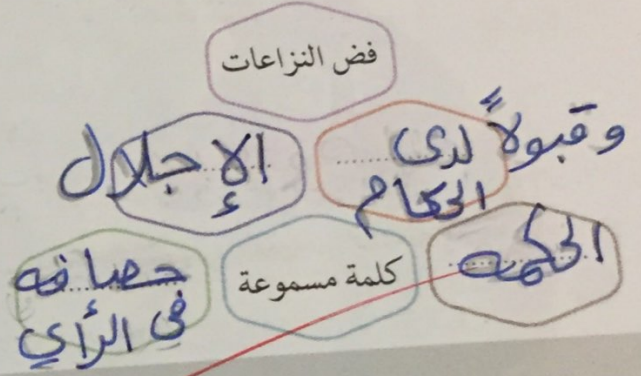 فض النزاعات
وقبولاً لدى
الحكام
الإجلال
الحكمه
كلمة مسموعة
حصافه
في الرأي